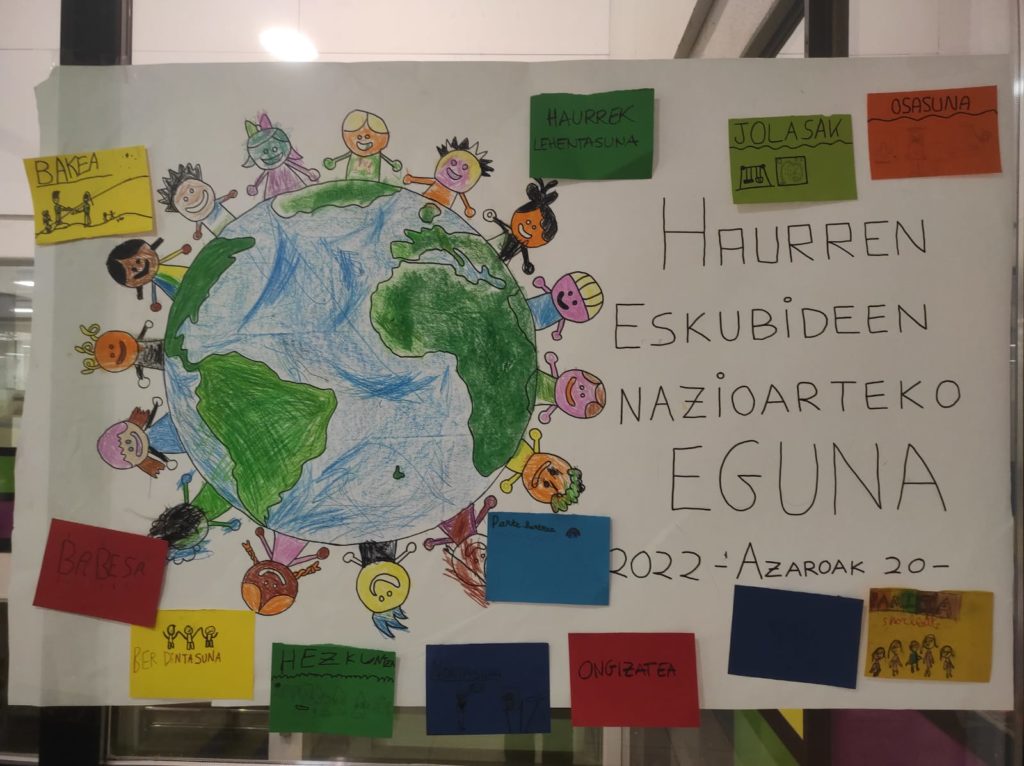 BAKEA
HAURREK
LEHENTASUNA
JOLASAK
OSASUNA
HAURREN
ESKUBIDEEN
NAZIOARTEKO
EGUNA
2022 - AZAROAK 20-
Parte hartzea
BABESA
BERDINTASUNA
HEZKUNTZA
ONGIZATEA